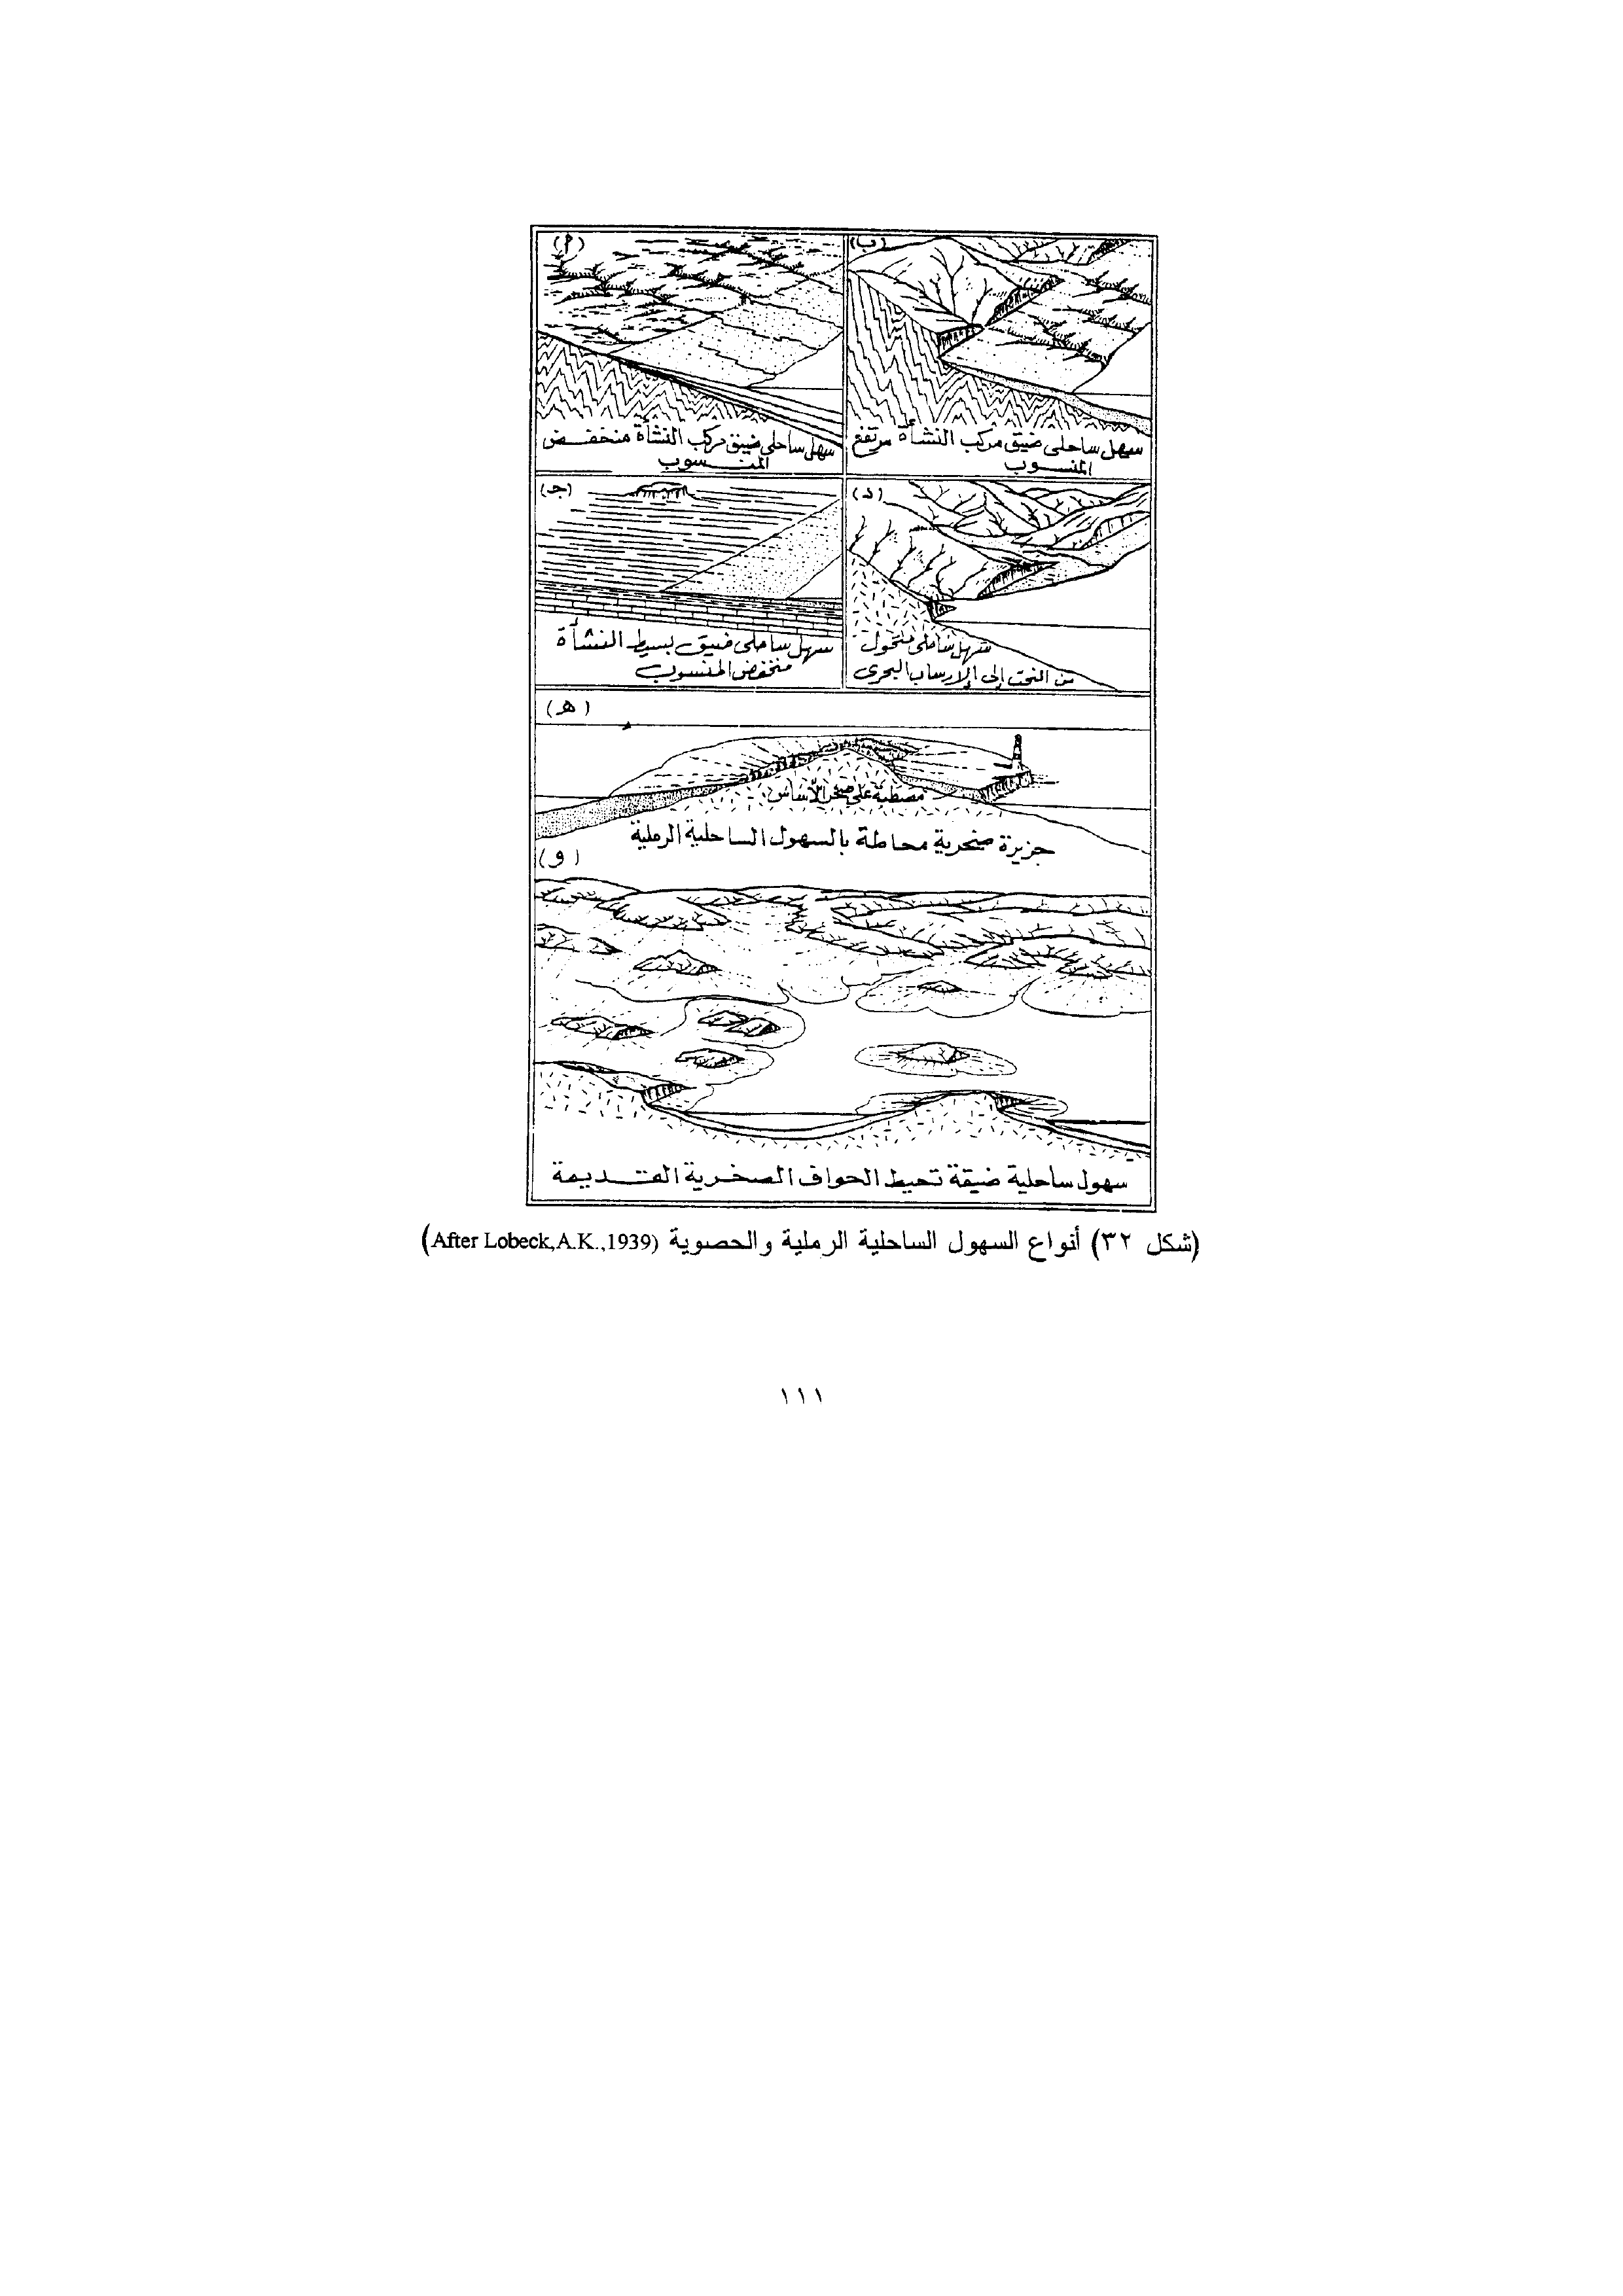 (أ)
سهل ساحلى ضيق مركب النشأة منخفض
المنسوب
(ب)
سهل ساحلى ضيق مركب النشأة مرتفع
المنسوب
(جـ)
سهل ساحلى ضيق بسيط النشأة
منخفض المنسوب
(د)
سهل ساحلى متحول
من النحت إلى الإرساب البحرى
(هـ)
مصطبة على صخر الأساس
جزيرة صخرية محاطة بالسهول الساحلية الرملية
(و)
سهول ساحلية ضيقة تحيط الحواف الصخرية القديمة
(شكل ٣٢) أنواع السهول الساحلية الرملية والحصوية (After Lobeck,A.K.,1939)
١١١